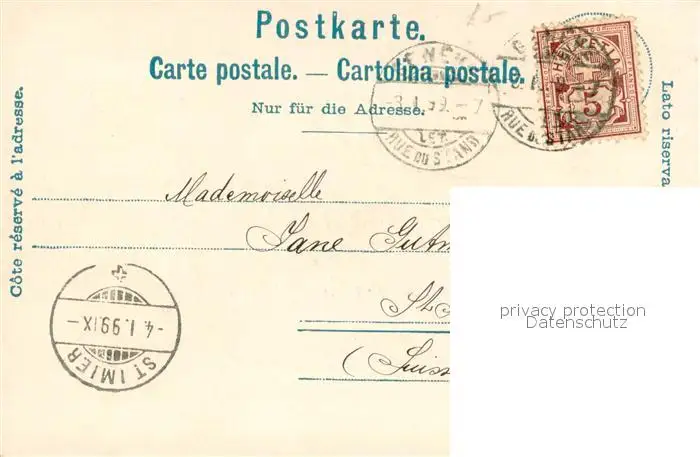 Postkarte.
Carte postale. — Cartolina postale.
Nur für die Adresse.
Côte réservé à l'adresse.
Lato riserva
-3.I.99.-7
LET
RUE DU STAND
HELVETIA
5
RUE DU STAND
Mademoiselle
Jane Gutm
St
(Suiss
-4.I.99.IX-
ST IMIER
privacy protection
Datenschutz